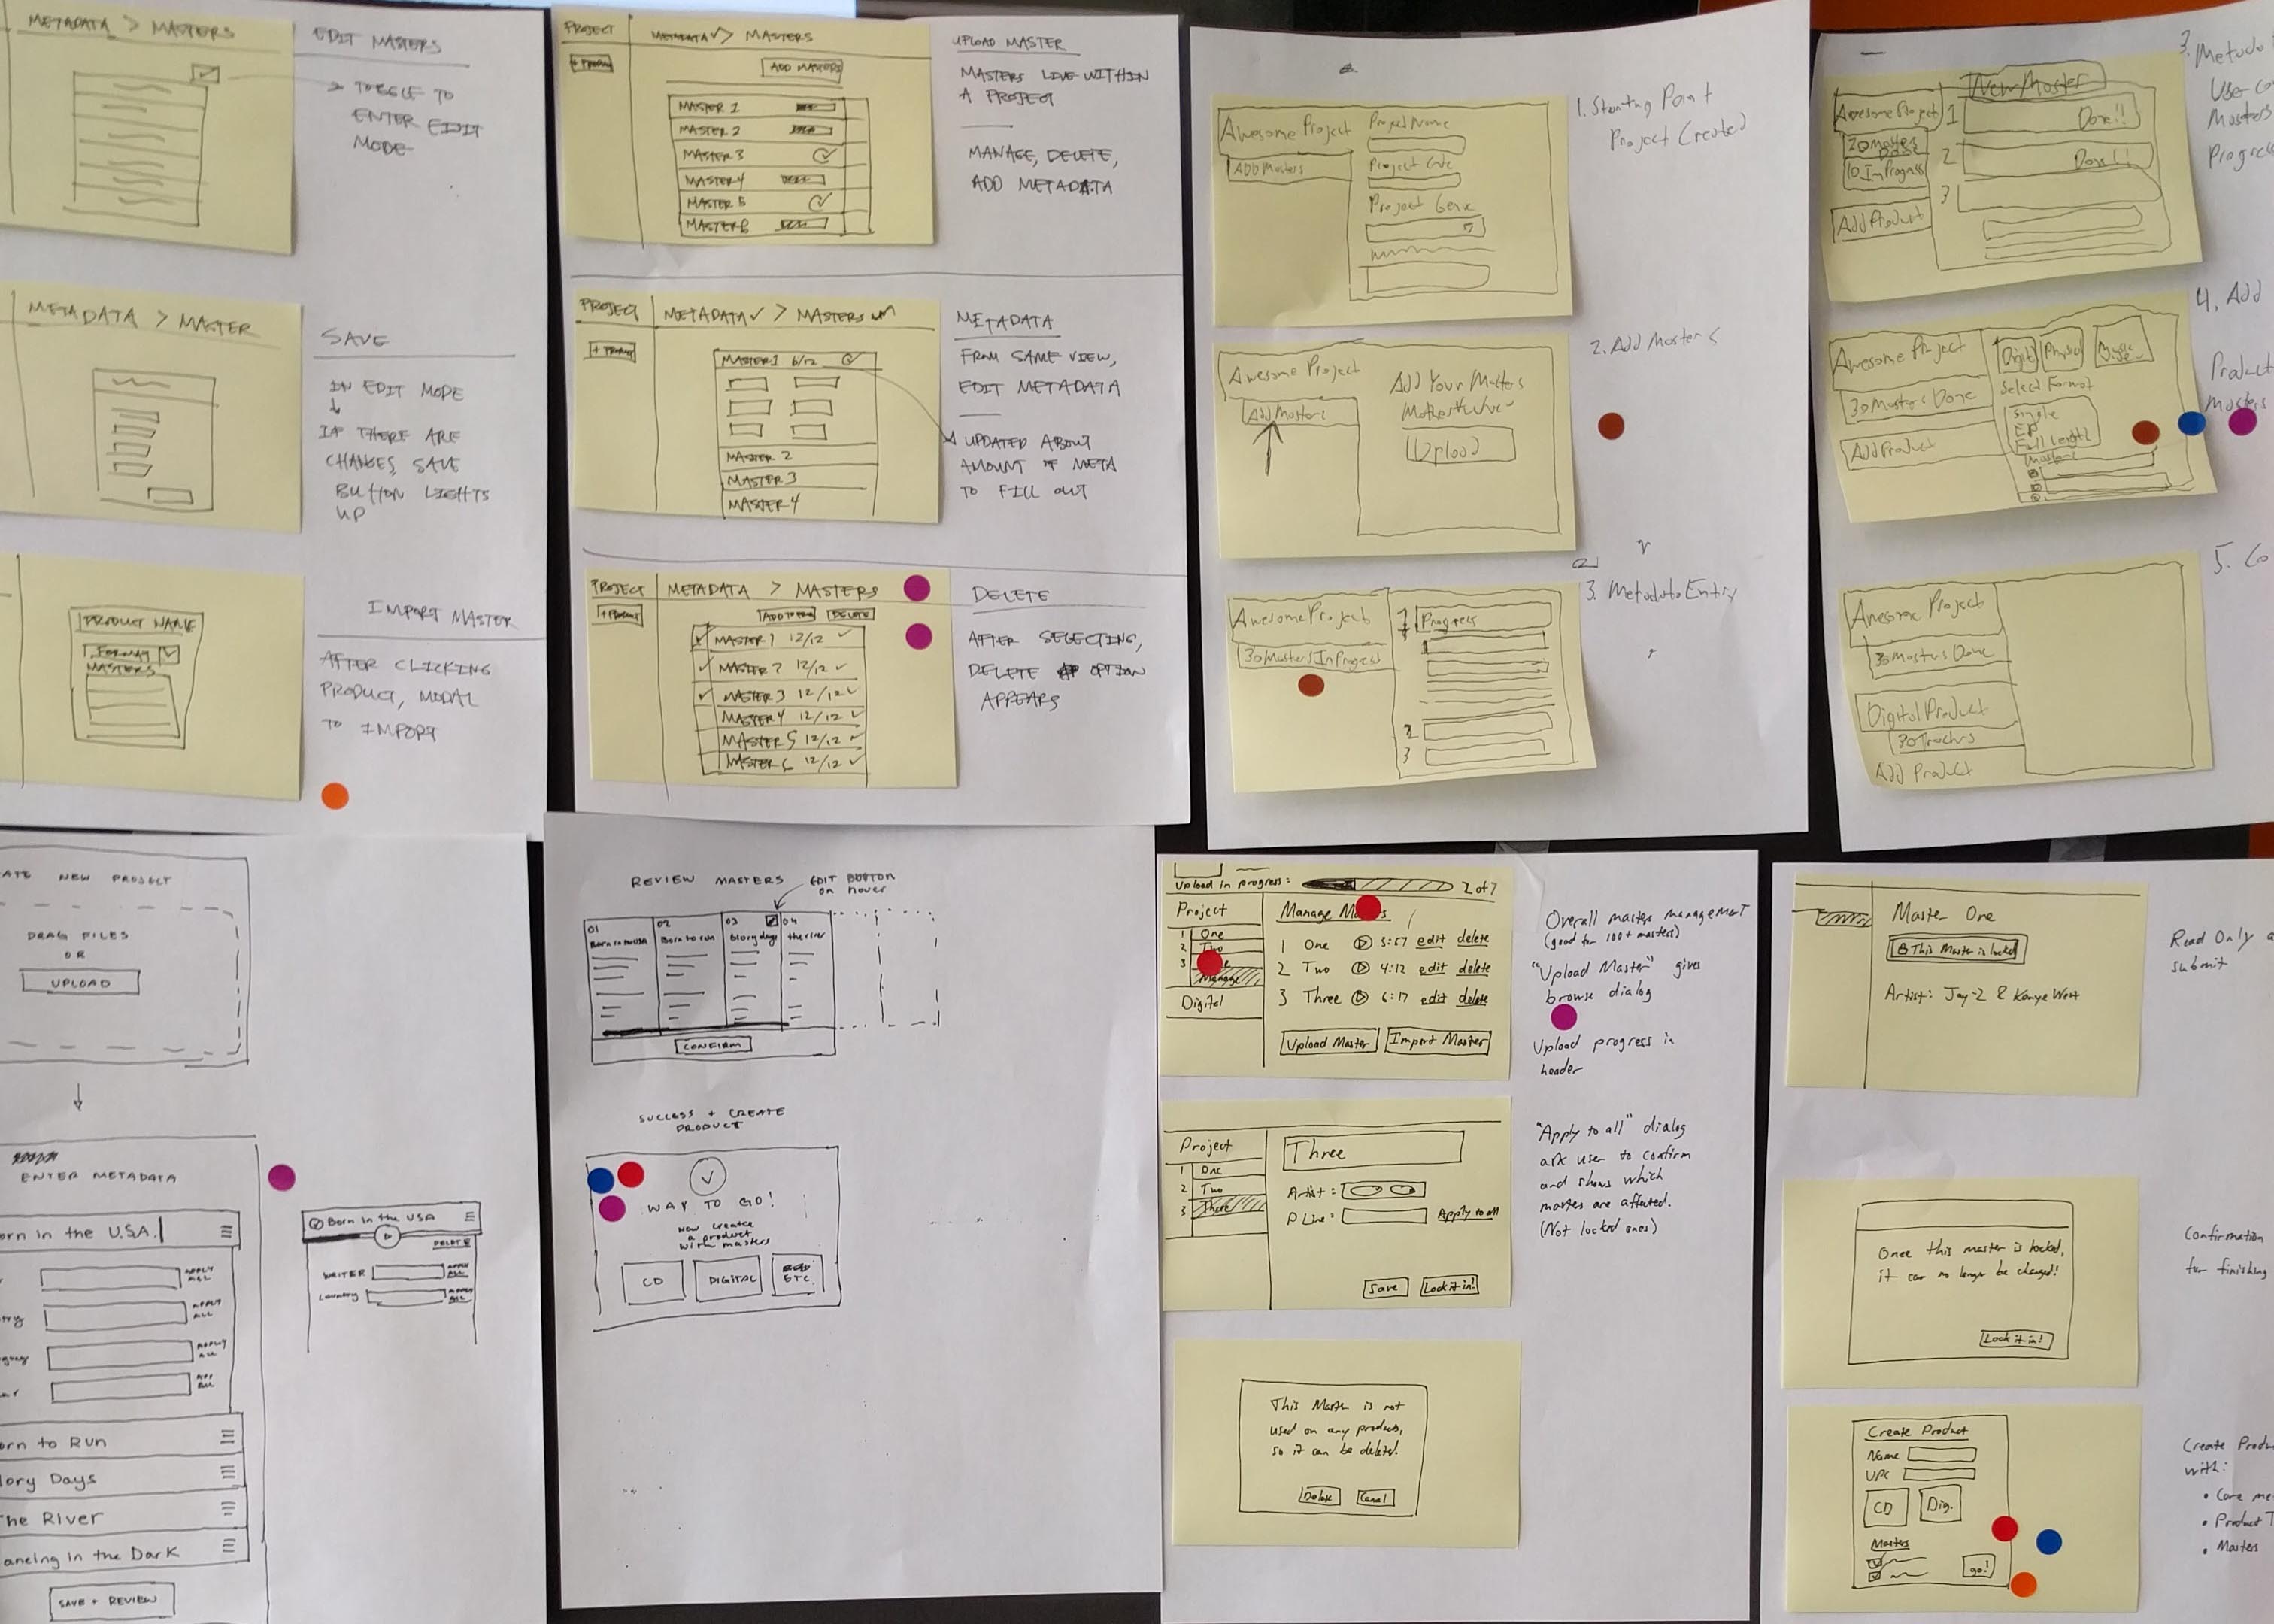 METADATA > MASTERS
EDIT MASTERS
TOGGLE TO
ENTER EDIT
MODE
METADATA > MASTER
SAVE
IN EDIT MODE
IF THERE ARE
CHANGES, SAVE
BUTTON LIGHTS
UP
PRODUCT NAME
FORMAT
MASTERS
IMPORT MASTER
AFTER CLICKING
PRODUCT, MODAL
TO IMPORT
PROJECT
METADATA ✓ > MASTERS
+ PRODUCT
ADD MASTERS
MASTER 1
MASTER 2
MASTER 3
MASTER 4
MASTER 5
MASTER 6
UPLOAD MASTER
MASTERS LIVE WITHIN
A PROJECT
MANAGE, DELETE,
ADD METADATA
PROJECT
METADATA ✓ > MASTERS
+ PRODUCT
MASTER 1 6/12
MASTER 2
MASTER 3
MASTER 4
METADATA
FROM SAME VIEW,
EDIT METADATA
UPDATED ABOUT
AMOUNT OF META
TO FILL OUT
PROJECT
METADATA > MASTERS
+ PRODUCT
ADD TO DELETE
MASTER 1 12/12 ✓
MASTER 2 12/12 ✓
MASTER 3 12/12 ✓
MASTER 4 12/12 ✓
MASTER 5 12/12 ✓
MASTER 6 12/12 ✓
DELETE
AFTER SELECTING,
DELETE OPTION
APPEARS
Awesome Project
Add Masters
Project Name
Project Code
Project Genre
1. Starting Point
Project Created
Awesome Project
Add Masters
Add Your Masters
Upload
2. Add Masters
Awesome Project
30 Masters In Progress
1 Progress
2
3
3. Metadata Entry
New Master
Awesome Project
20 Masters Done
10 In Progress
Add Product
1 Done!!
2 Done!!
3
3. Metada
User
Masters
Progress
Awesome Project
30 Masters Done
Add Product
Digital Physical Music
Select Format
Single
EP
Full Length
Masters
4. Add
Product
Masters
Awesome Project
30 Masters Done
Digital Product
30 Tracks
Add Product
5. Co
ATE NEW PROJECT
DRAG FILES
OR
UPLOAD
ENTER METADATA
orn in the U.S.A.
APPLY ALL
APPLY ALL
APPLY ALL
APP ALL
orn to Run
lory Days
The River
ancing in the Dark
SAVE + REVIEW
Born in the USA
DELETE
WRITER APPLY ALL
COUNTRY APPLY ALL
REVIEW MASTERS
EDIT BUTTON
on hover
01 02 03 04
Born in the USA Born to run Glory days the river
CONFIRM
SUCCESS + CREATE
PRODUCT
WAY TO GO!
NOW CREATE
A PRODUCT
WITH MASTERS
CD DIGITAL ETC.
Upload in progress: 2 of 7
Project
1 One
2 Two
3
Manage
Digital
Manage Masters
1 One 3:57 edit delete
2 Two 4:12 edit delete
3 Three 6:17 edit delete
Upload Master Import Master
Overall master management
(good for 100+ masters)
"Upload Master" gives
browse dialog
Upload progress in
header
Project
1 One
2 Two
3 Three
Three
Artist:
P Line: Apply to all
Save Lock it in!
"Apply to all" dialog
ask user to confirm
and shows which
masters are affected.
(Not locked ones)
This Master is not
used on any products,
so it can be deleted.
Delete Cancel
Master One
This Master is locked
Artist: Jay-Z & Kanye West
Read Only a
submit
Once this master is locked,
it can no longer be changed!
Lock it in!
Confirmation
for finishing
Create Product
Name
UPC
CD Dig.
Masters
go!
Create Produ
with:
• Core me
• Product T
• Masters